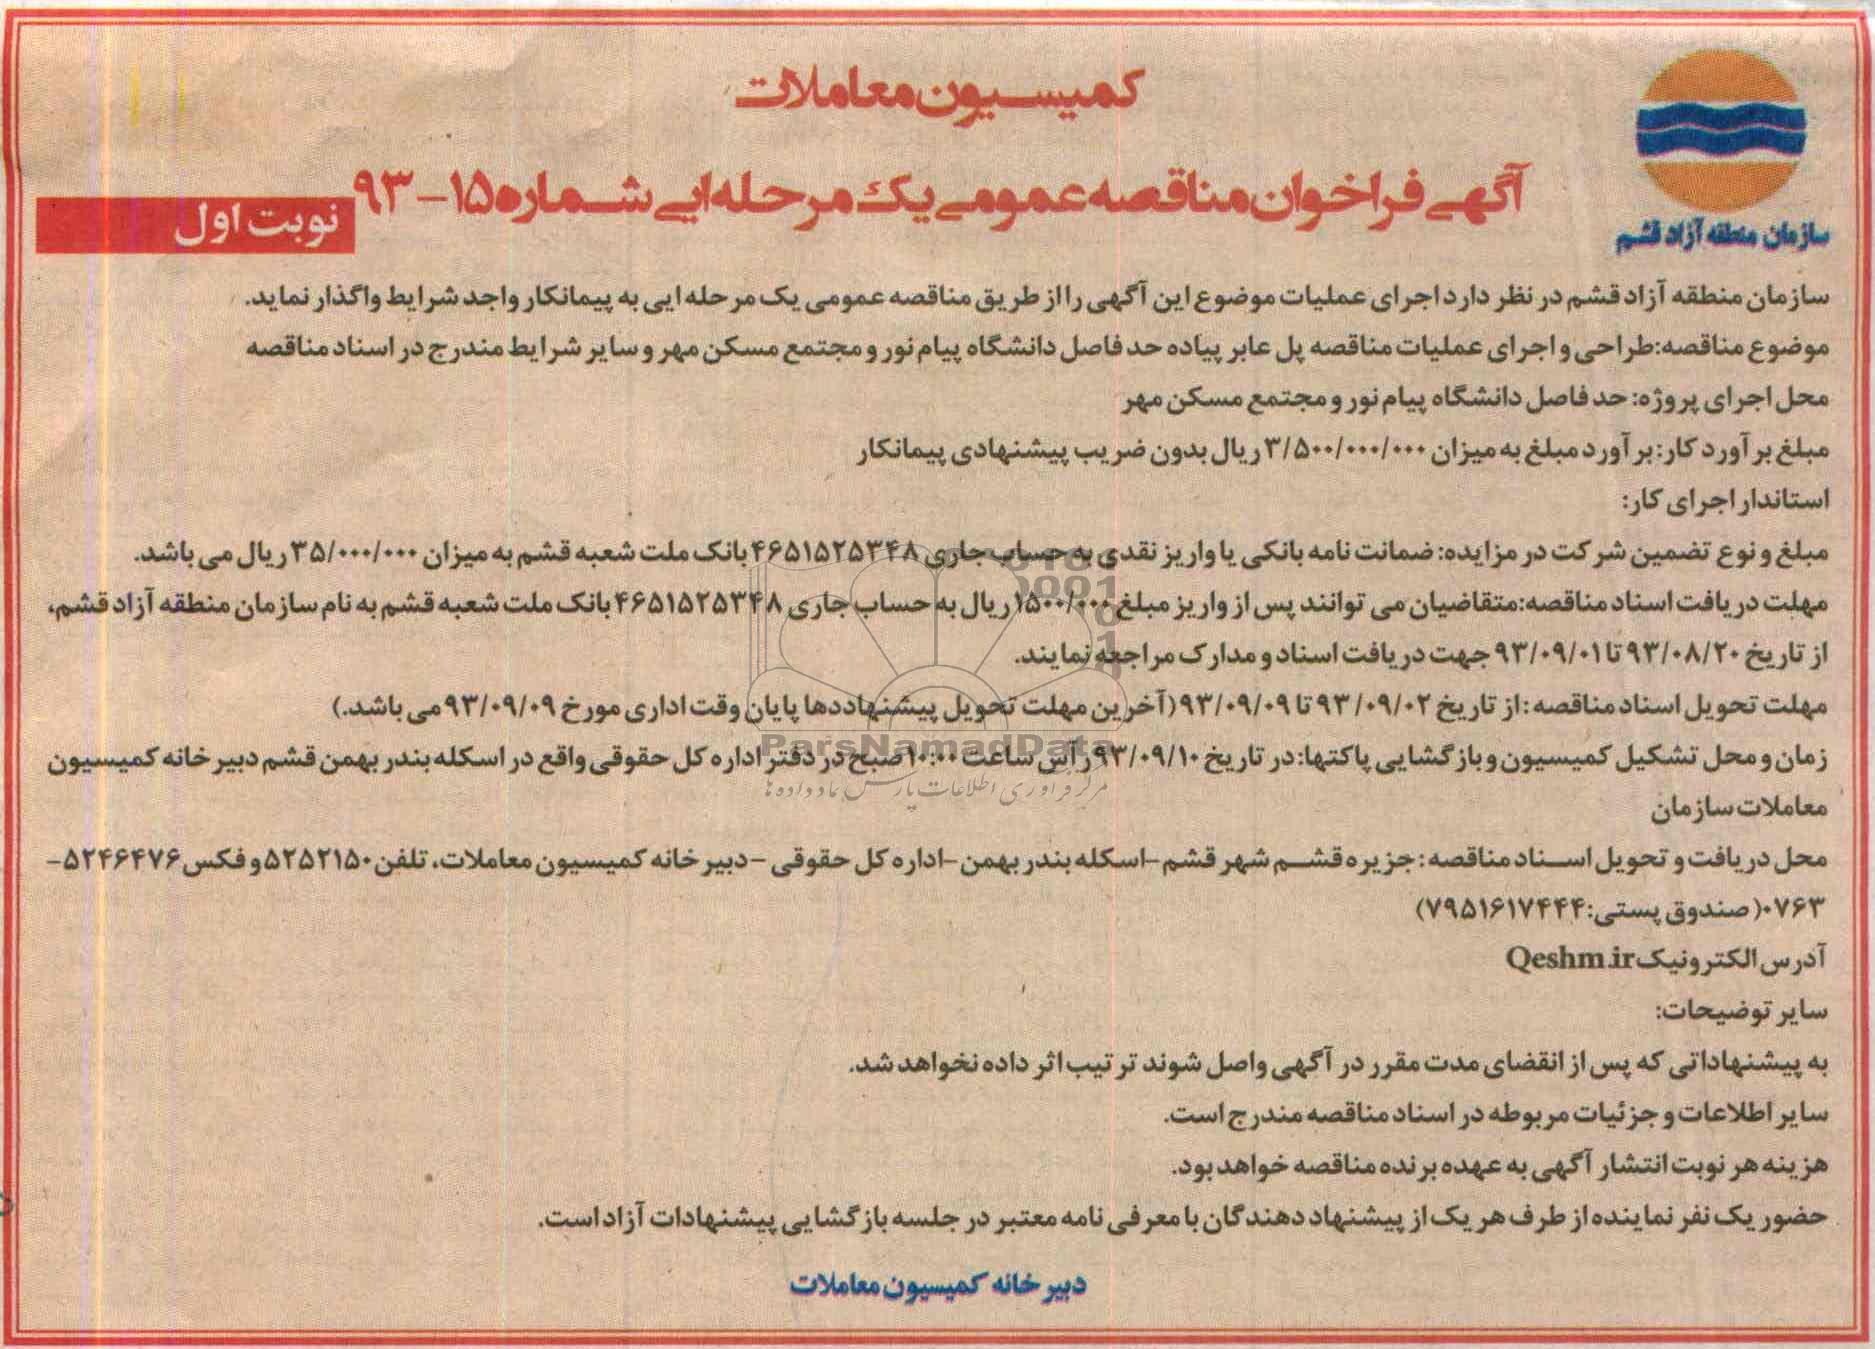 کمیسیون معاملات
آگهی فراخوان مناقصه عمومی یک مرحله ایی شماره ۱۵-۹۳
نوبت اول
سازمان منطقه آزاد قشم
سازمان منطقه آزاد قشم در نظر دارد اجرای عملیات موضوع این آگهی را از طریق مناقصه عمومی یک مرحله ایی به پیمانکار واجد شرایط واگذار نماید.
موضوع مناقصه:طراحی و اجرای عملیات مناقصه پل عابر پیاده حد فاصل دانشگاه پیام نور و مجتمع مسکن مهر و سایر شرایط مندرج در اسناد مناقصه
محل اجرای پروژه: حد فاصل دانشگاه پیام نور و مجتمع مسکن مهر
مبلغ بر آورد کار: بر آورد مبلغ به میزان ۳/۵۰۰/۰۰۰/۰۰۰ ریال بدون ضریب پیشنهادی پیمانکار
استاندار اجرای کار:
مبلغ و نوع تضمین شرکت در مزایده: ضمانت نامه بانکی یا واریز نقدی به حساب جاری ۴۶۵۱۵۲۵۳۴۸ بانک ملت شعبه قشم به میزان ۳۵/۰۰۰/۰۰۰ ریال می باشد.
مهلت دریافت اسناد مناقصه:متقاضیان می توانند پس از واریز مبلغ ۱۵۰۰/۰۰۰ ریال به حساب جاری ۴۶۵۱۵۲۵۳۴۸ بانک ملت شعبه قشم به نام سازمان منطقه آزاد قشم،
از تاریخ ۹۳/۰۸/۲۰ تا ۹۳/۰۹/۰۱ جهت دریافت اسناد و مدارک مراجعه نمایند.
مهلت تحویل اسناد مناقصه :از تاریخ ۹۳/۰۹/۰۲ تا ۹۳/۰۹/۰۹ (آخرین مهلت تحویل پیشنهاددها پایان وقت اداری مورخ ۹۳/۰۹/۰۹ می باشد.)
ParsNamadData
زمان و محل تشکیل کمیسیون و بازگشایی پاکتها: در تاریخ ۹۳/۰۹/۱۰ رأس ساعت ۱۰:۰۰ صبح در دفتر اداره کل حقوقی واقع در اسکله بندر بهمن قشم دبیر خانه کمیسیون
مرکز فرآوری اطلاعات پارس نماد داده ها
معاملات سازمان
محل دریافت و تحویل اسناد مناقصه : جزیره قشم شهر قشم -اسکله بندر بهمن -اداره کل حقوقی -دبیر خانه کمیسیون معاملات، تلفن ۵۲۵۲۱۵۰ و فکس ۵۲۴۶۴۷۶-
۰۷۶۳( صندوق پستی:۷۹۵۱۶۱۷۴۴۴)
آدرس الکترونیک Qeshm.ir
سایر توضیحات:
به پیشنهاداتی که پس از انقضای مدت مقرر در آگهی واصل شوند ترتیب اثر داده نخواهد شد.
سایر اطلاعات و جزئیات مربوطه در اسناد مناقصه مندرج است.
هزینه هر نوبت انتشار آگهی به عهده برنده مناقصه خواهد بود.
حضور یک نفر نماینده از طرف هر یک از پیشنهاد دهندگان با معرفی نامه معتبر در جلسه بازگشایی پیشنهادات آزاد است.
دبیر خانه کمیسیون معاملات